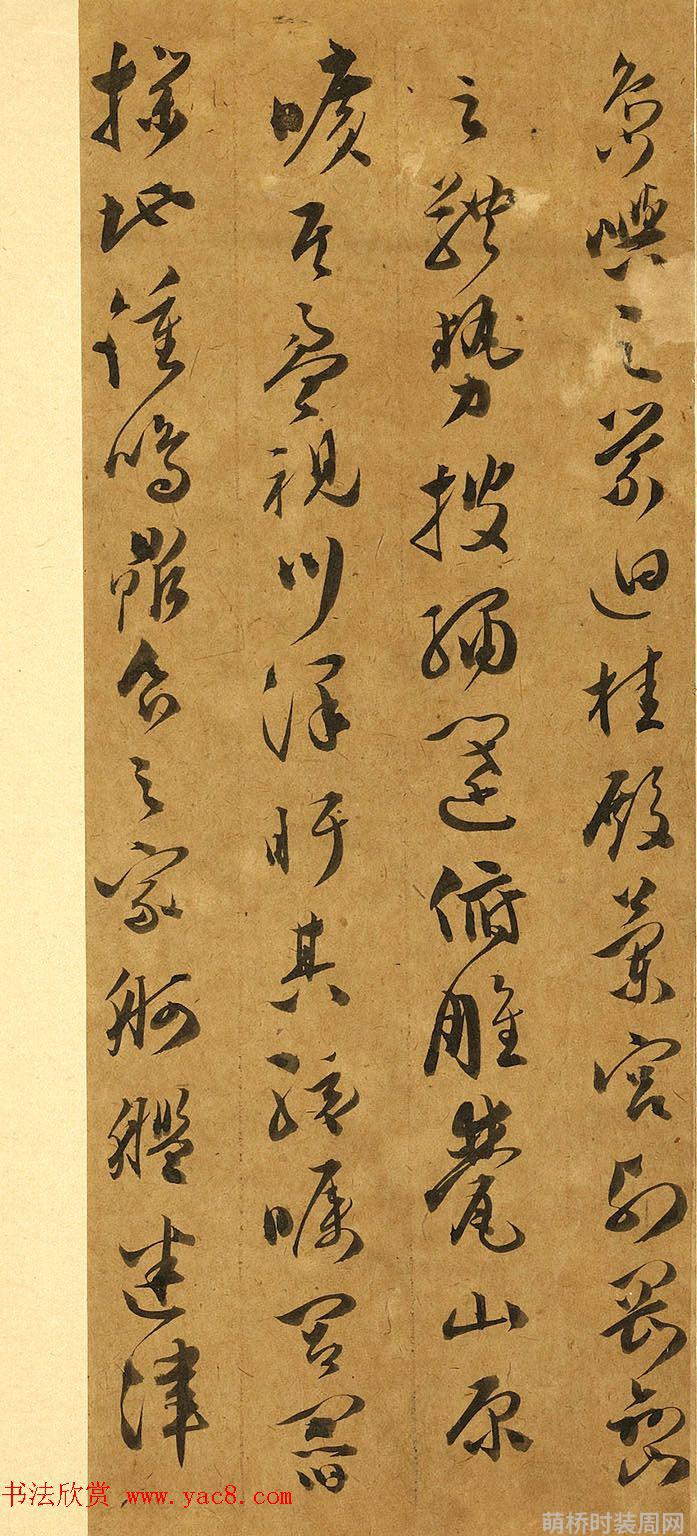 島嶼之縈迴桂殿蘭宮列岡巒
之體勢披繡闥俯雕甍山原
曠其盈視川澤盱其駭矚閭閻
撲地鍾鳴鼎食之家舸艦迷津
书法欣赏 www.yac8.com
萌桥时装周网